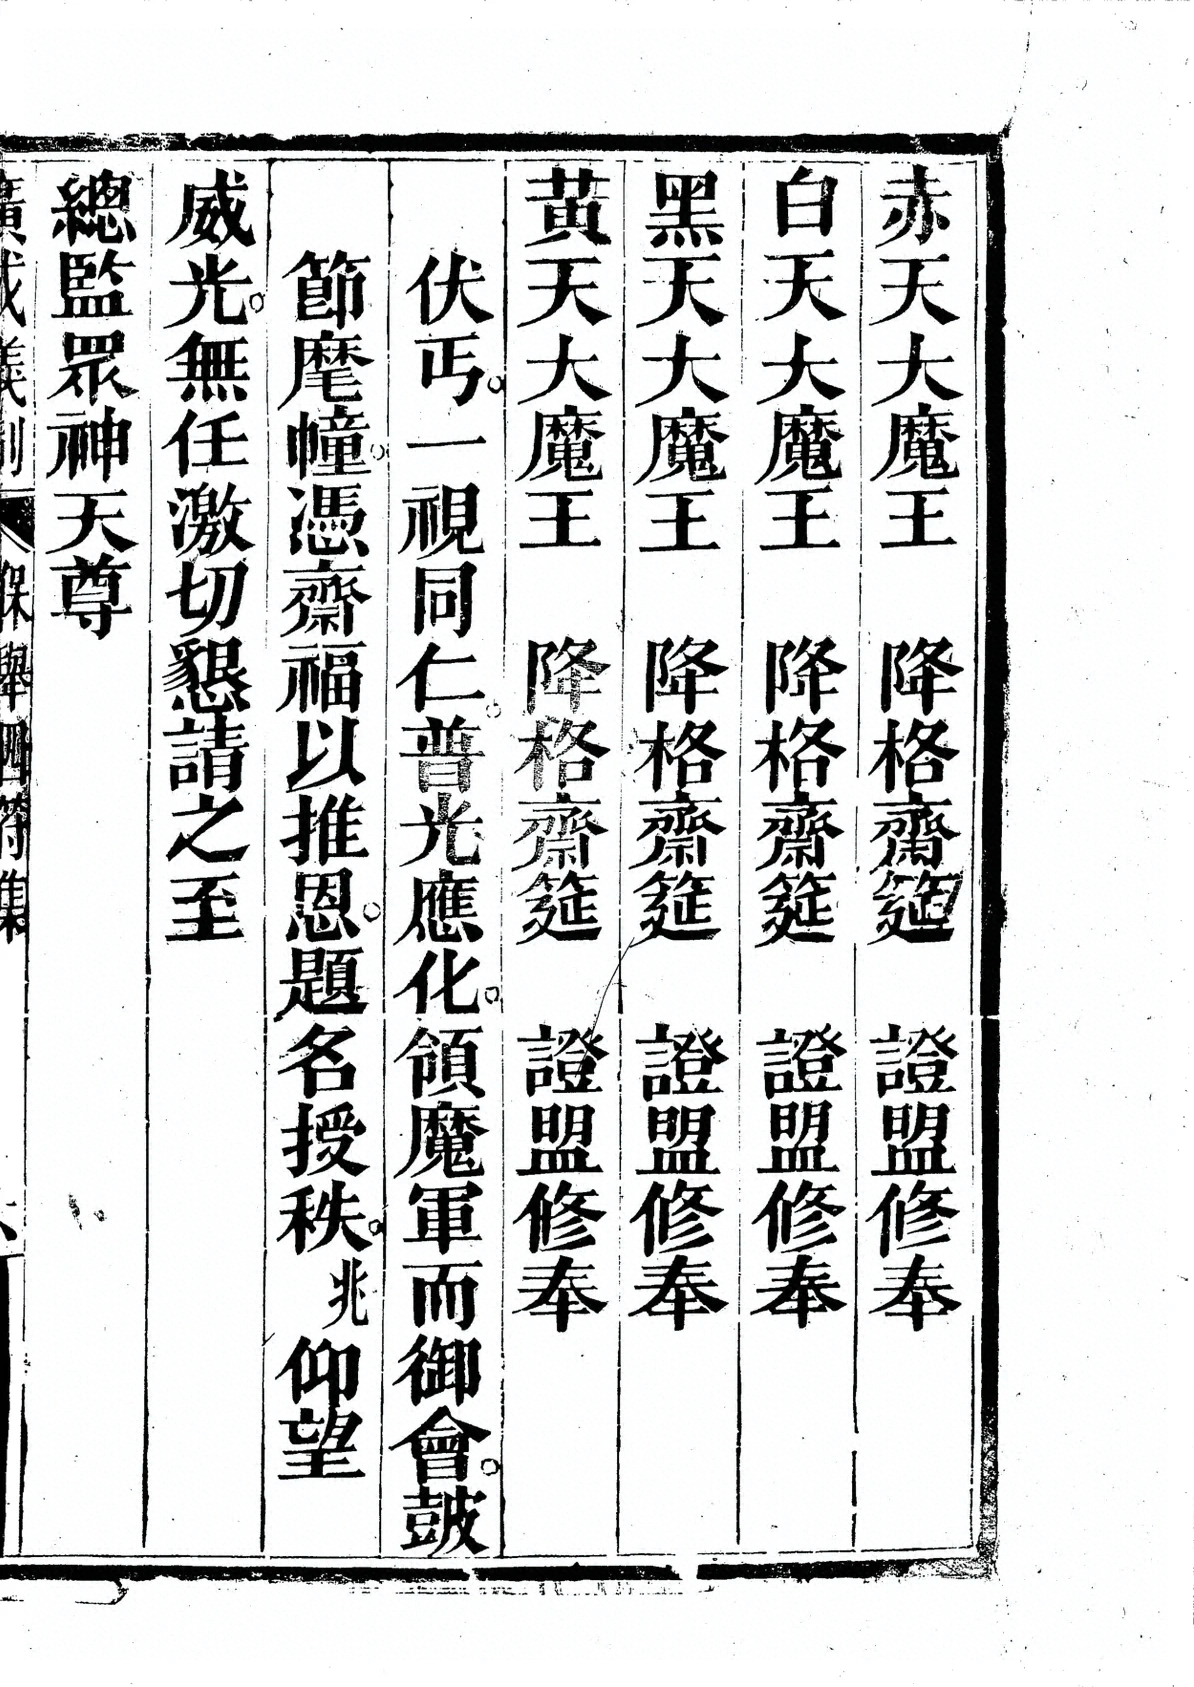 赤天大魔王　降格齋筵　證盟修奉
白天大魔王　降格齋筵　證盟修奉
黑天大魔王　降格齋筵　證盟修奉
黃天大魔王　降格齋筵　證盟修奉
伏丐。一視同仁。普光應化。領魔軍而御會。鼓
節麾幢。憑齋福以推恩。題名授秩。兆仰望
威光。無任激切懇請之至
總監眾神天尊
廣成儀制　保舉四符集